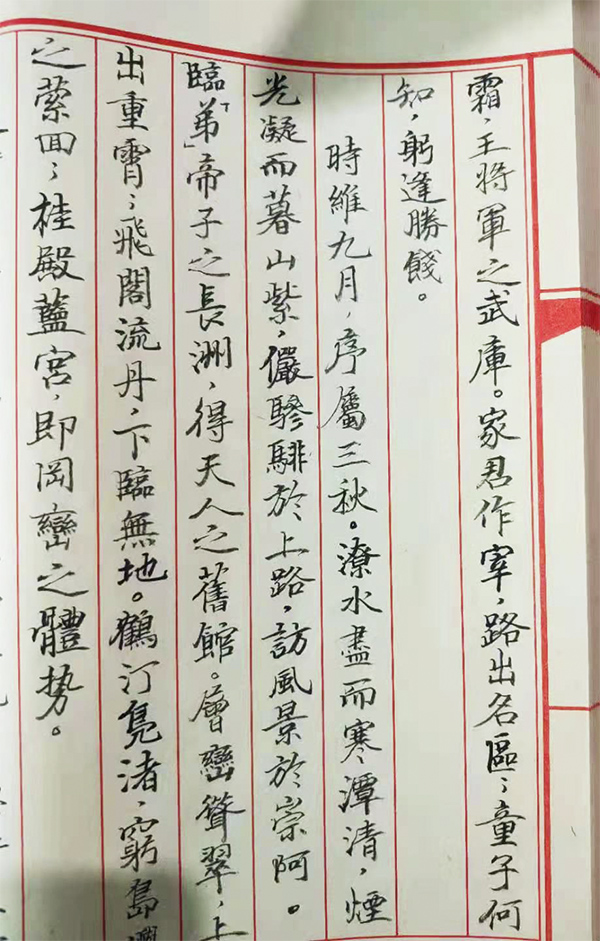 霜，王將軍之武庫。家君作宰，路出名區；童子何
知，躬逢勝餞。
時維九月，序屬三秋。潦水盡而寒潭清，煙
光凝而暮山紫，儼驂騑於上路，訪風景於崇阿。
臨「弟」帝子之長洲，得天人之舊館。層巒聳翠，上
出重霄；飛閣流丹，下臨無地。鶴汀鳧渚，窮島
之縈回；桂殿藍宮，即岡巒之體勢。